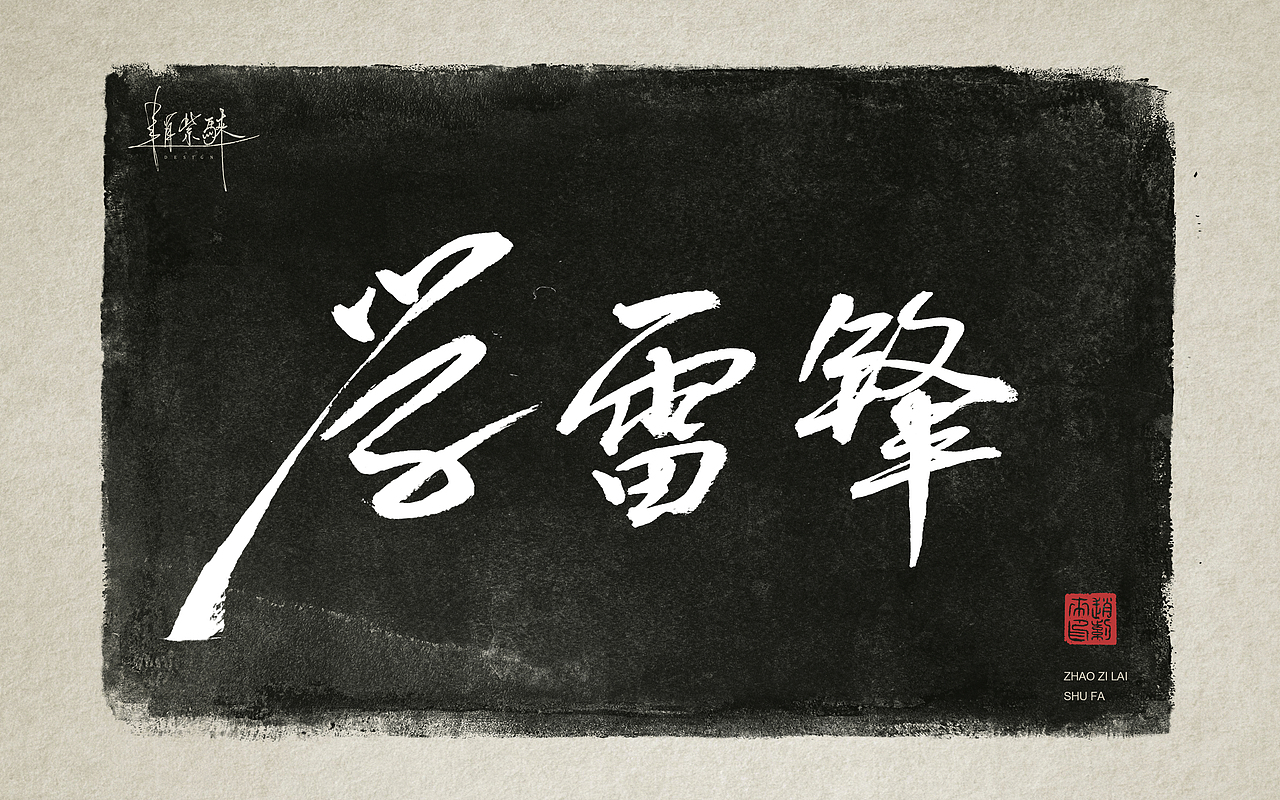 DESIGN
学雷锋
ZHAO ZI LAI
SHU FA